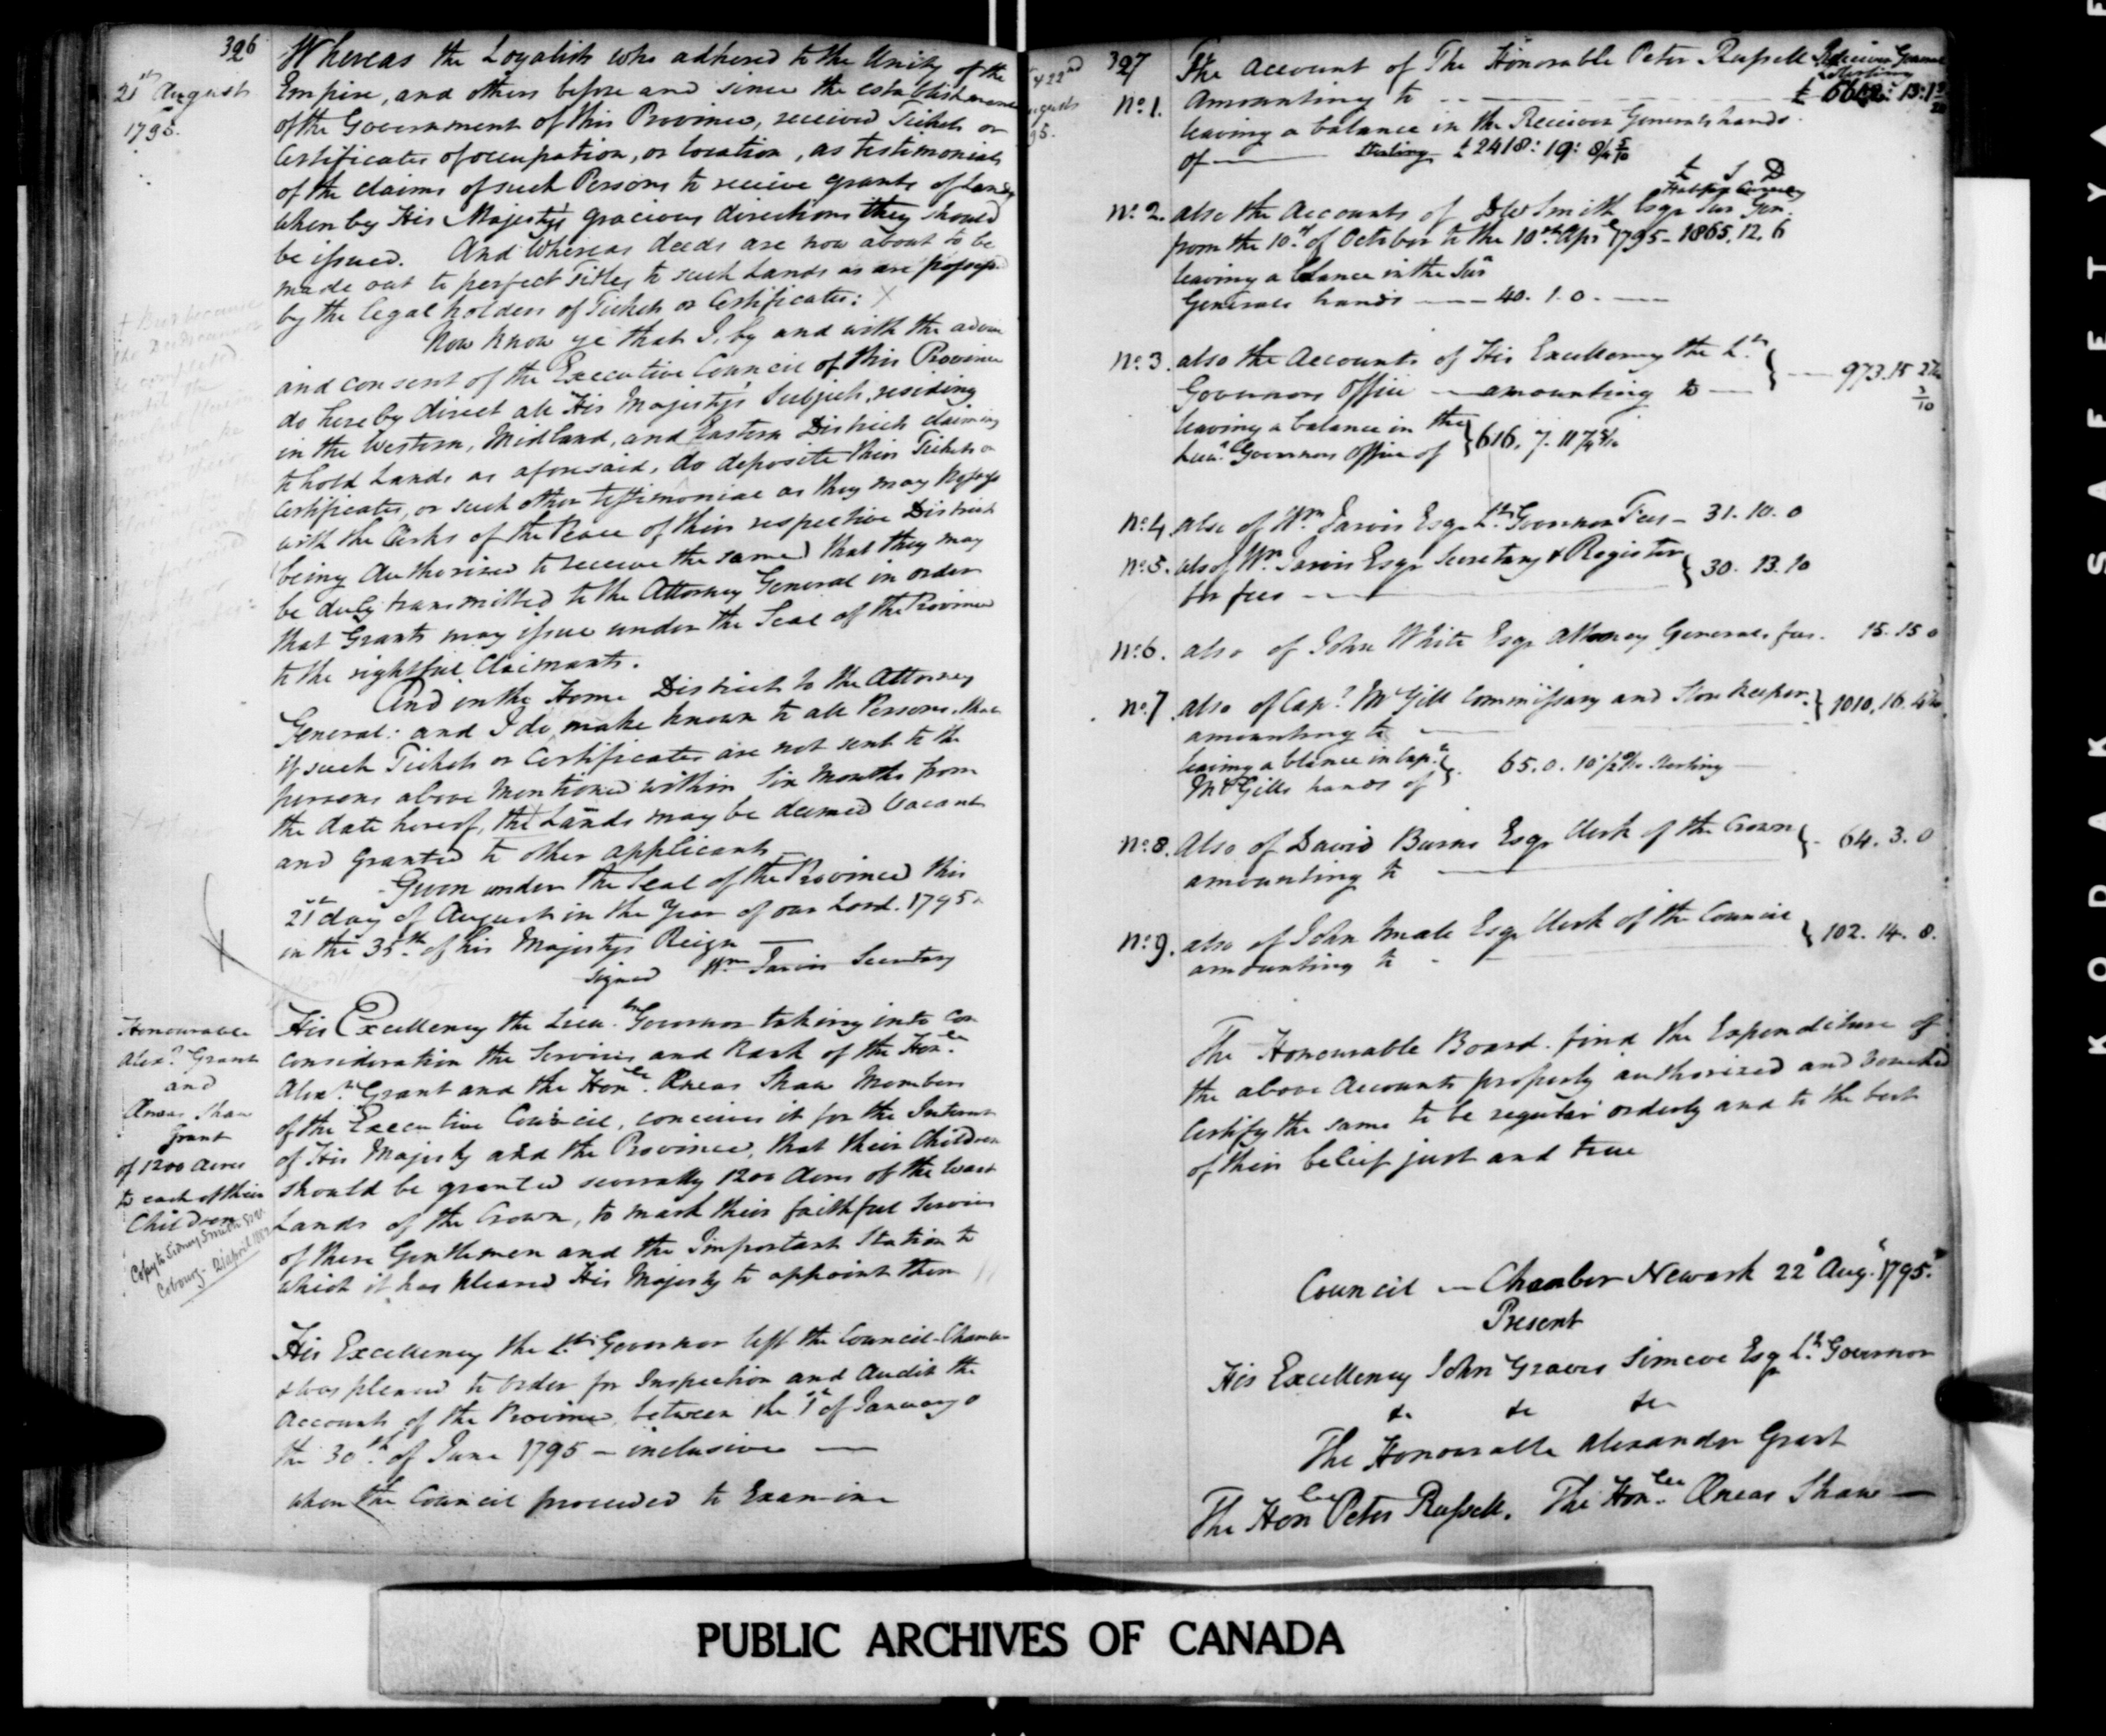 326
21st August
1795.
Whereas the Loyalists who adhered to the Unity of the
Empire, and others before and since the establishment
of the Government of this Province, received Tickets or
Certificates of occupation, or location, as testimonials
of the claims of such Persons to receive grants of Lands
when by His Majesty's gracious directions they should
be issued. And Whereas deeds are now about to be
made out to perfect Titles to such Lands as are possessed
by the legal holders of Tickets or Certificates: X
Now know ye that I, by and with the advice
and consent of the Executive Council of this Province
do hereby direct all His Majesty's Subjects, residing
in the Western, Midland, and Eastern Districts claiming
to hold Lands as aforesaid, do deposite their Tickets or
Certificates, or such other testimonial as they may possess
with the Clerks of the Peace of their respective Districts
being Authorised to receive the same that they may
be duly transmitted to the Attorney General in order
that Grants may issue under the Seal of the Province
to the rightful Claimants.
And in the Home District to the Attorney
General: and I do make known to all Persons, that
if such Tickets or Certificates are not sent to the
persons above mentioned within Six Months from
the date hereof, the Lands may be deemed Vacant
and Granted to other applicants
Given under the Seal of the Province this
21st day of August in the Year of our Lord. 1795
in the 35th of his Majestys Reign
Signed Wm Jarvis Secretary
Honourable
Alexr Grant
and
Æneas Shaw
Grant
of 1200 Acres
to each of their
Children
Copy to Sidney Smith Esqr
Cobourg - 21 April 1882
His Excellency the Lieu. Governor taking into Con
consideration the Services and Rank of the Honble
Alexr Grant and the Honble Æneas Shaw Members
of the Executive Council, conceives it for the Interest
of His Majesty and the Province, that their Children
should be granted severally 1200 Acres of the waste
Lands of the Crown, to mark their faithful Services
of these Gentlemen and the Important Station to
which it has pleased His Majesty to appoint them
His Excellency the Lt Governor left the Council-Chamber
& was pleased to order for Inspection and Audit the
Accounts of the Province, between the 1st of January &
the 30th of June 1795 - inclusive
when the Council proceeded to Examine
327
& 22nd
No. 1. The Account of The Honorable Peter Russell Receiver General
Sterling
Amounting to £ 6642: 13: 1
leaving a balance in the Receiver Generals hands
of Sterling £ 2418: 19: 8
£ S D
Halifax Currency
No. 2. also the Accounts of D W Smith Esqr Sur Gen.
from the 10th of October to the 10th Apr 1795 - 1865. 12. 6
leaving a balance in the Sur
Generals hands 40. 1. 0.
No. 3. also the Accounts of His Excellency the Lt
Governors Office amounting to 973. 15
leaving a balance in the
Lieu. Governors Office of 616. 7. 11
No. 4. also of Wm Jarvis Esqr Lt Governor Fees - 31. 10. 0
No. 5. also of Wm Jarvis Esqr Secretary & Register
for fees 30. 13. 10
No. 6. also of John White Esqr Attorney Generals fees. 15. 15 0
No. 7. also of Capt McGill Commissary and Store keeper
amounting to 1010. 16. 4
leaving a balance in Capt
McGills hands of 65. 0. 10 Sterling
No. 8. Also of David Burns Esqr Clerk of the Crown
amounting to 64. 3. 0
No. 9. also of John Small Esqr Clerk of the Council
amounting to 102. 14. 8.
The Honourable Board find the Expenditure of
the above Accounts properly authorised and vouched
Certify the same to be regular orderly and to the best
of their belief just and true
Council - Chamber Newark 22d Aug. 1795.
Present
His Excellency John Graves Simcoe Esqr Lt Governor
&c &c &c
The Honourable Alexander Grant
The Honble Peter Russell. The Honble Æneas Shaw
PUBLIC ARCHIVES OF CANADA
KODAK SAFETY